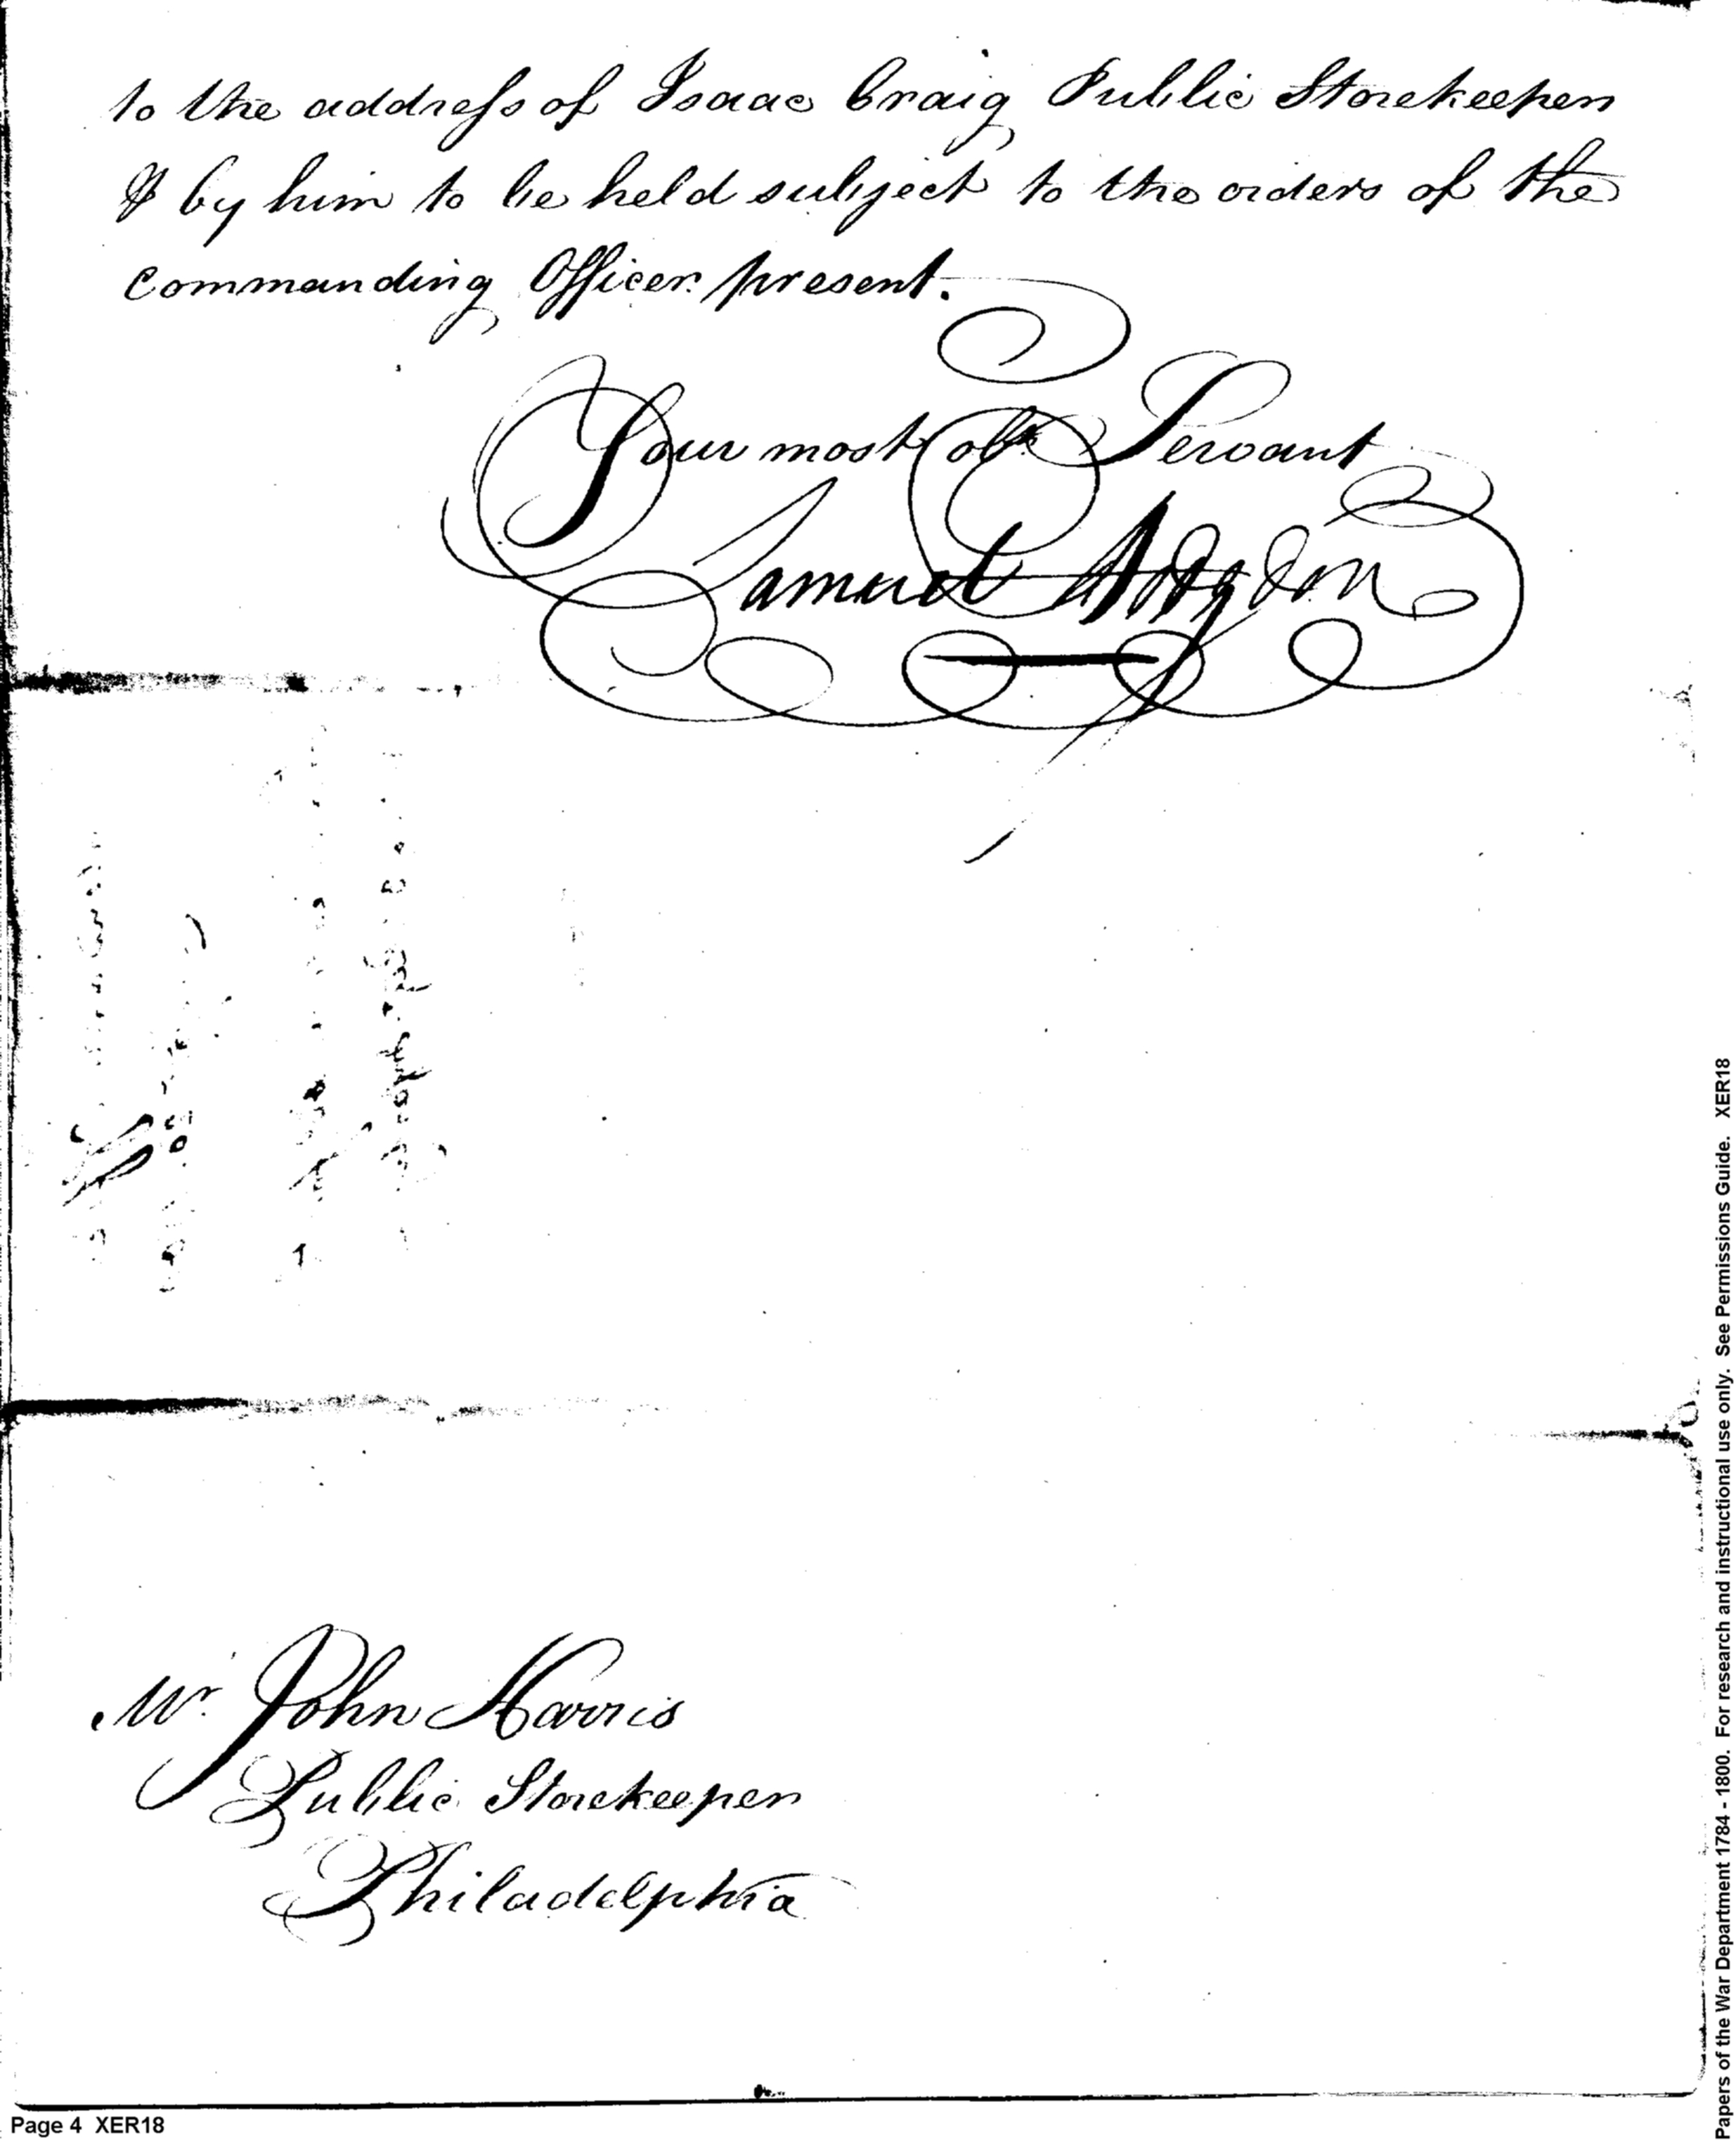 to the address of Isaac Craig Public Storekeeper
& by him to be held subject to the orders of the
Commanding Officer present.
Your most obt Servant
Samuel Hodgdon
Mr. John Harris
Public Storekeeper
Philadelphia
Page 4 XER18
Papers of the War Department 1784 - 1800. For research and instructional use only. See Permissions Guide. XER18